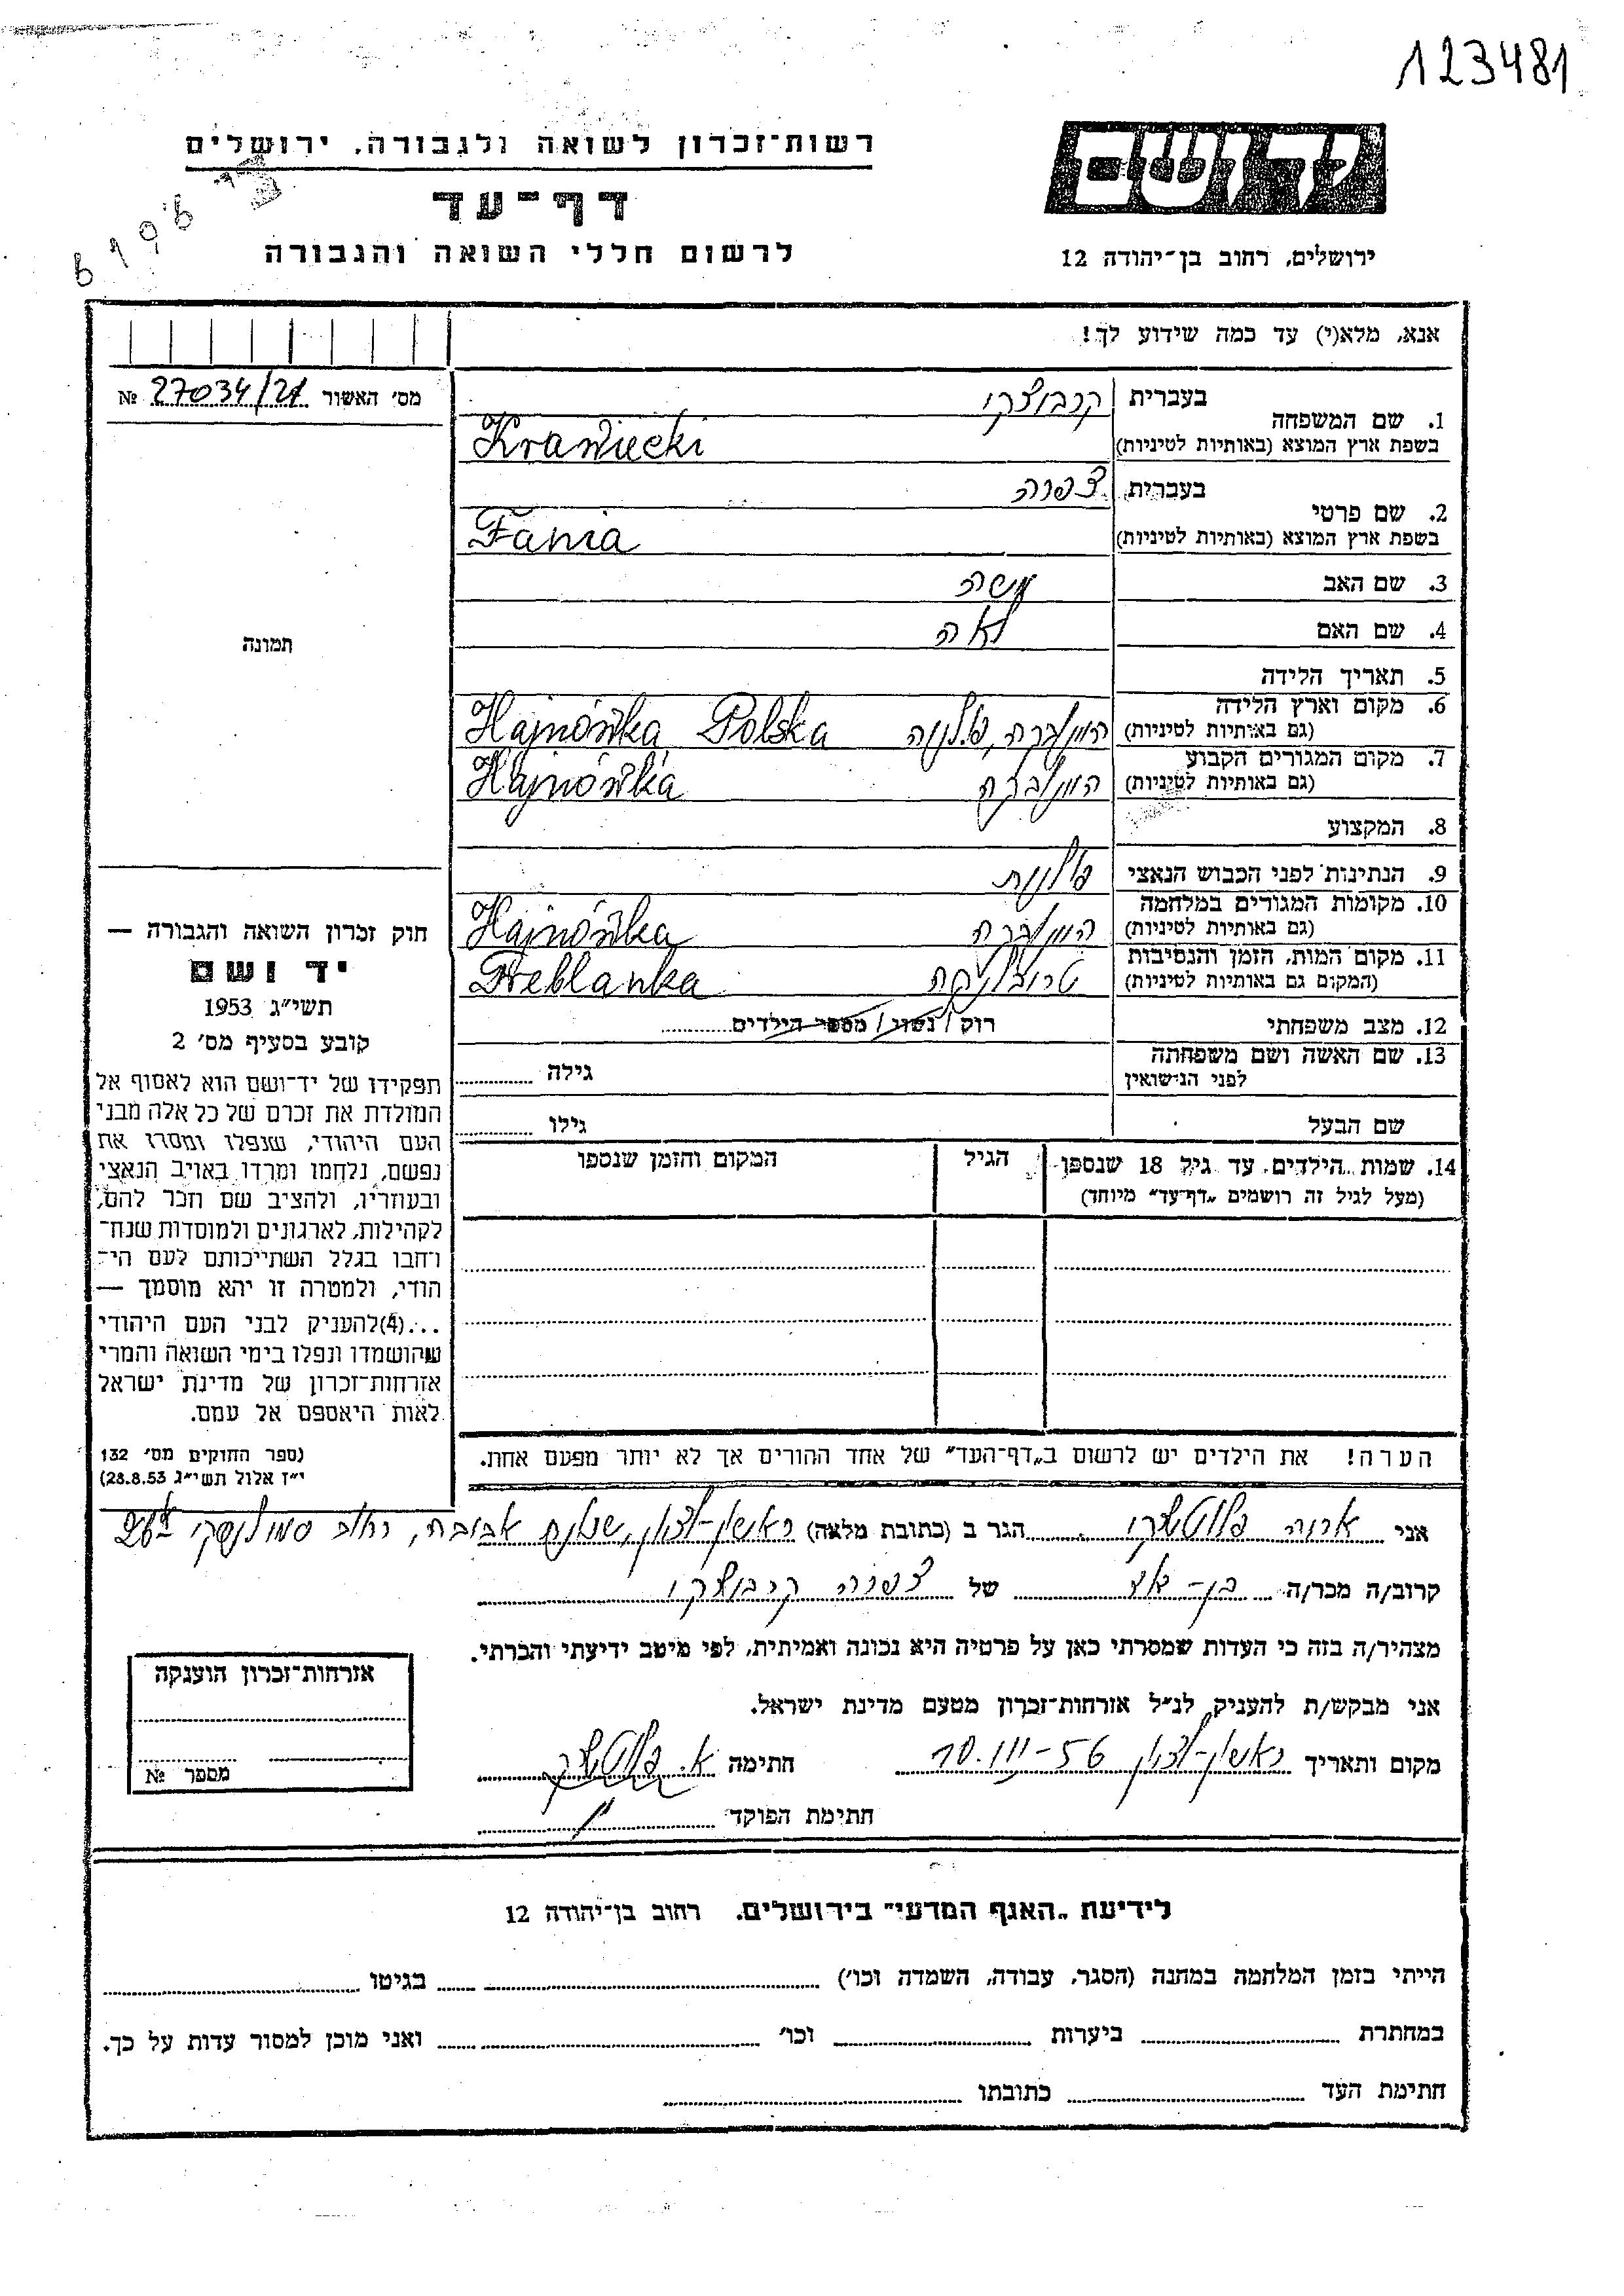 123481
רשות־זכרון לשואה ולגבורה, ירושלים
דף־עד
לרשום חללי השואה והגבורה
יד ושם
ירושלים, רחוב בן־יהודה 12
אנא, מלא(י) עד כמה שידוע לך!
מס׳ האשור 27034/21 №
תמונה
1. שם המשפחה
בעברית
בשפת ארץ המוצא (באותיות לטיניות) Krawiecki
2. שם פרטי
בעברית צפורה
בשפת ארץ המוצא (באותיות לטיניות) Fania
3. שם האב משה
4. שם האם לאה
5. תאריך הלידה
6. מקום וארץ הלידה
(גם באותיות לטיניות) היינובקה, פולניה Hajnówka Polska
7. מקום המגורים הקבוע
(גם באותיות לטיניות) היינובקה Hajnówka
8. המקצוע
9. הנתינות לפני הכבוש הנאצי פולנית
10. מקומות המגורים במלחמה
(גם באותיות לטיניות) היינובקה Hajnówka
11. מקום המות, הזמן והנסיבות
(המקום גם באותיות לטיניות) טרבלינקה Treblanka
12. מצב משפחתי רוק / נשוי / מספר הילדים
13. שם האשה ושם משפחתה
לפני הנישואין גילה
שם הבעל גילו
14. שמות הילדים עד גיל 18 שנספו
(מעל לגיל זה רושמים „דף־עד״ מיוחד)
הגיל
המקום והזמן שנספו
חוק זכרון השואה והגבורה —
יד ושם
תשי״ג 1953
קובע בסעיף מס׳ 2
תפקידו של יד־ושם הוא לאסוף אל
המולדת את זכרם של כל אלה מבני
העם היהודי, שנפלו ומסרו את
נפשם, נלחמו ומרדו באויב הנאצי
ובעוזריו, ולהציב שם וזכר להם,
לקהילות, לארגונים ולמוסדות שנח־
רחבו בגלל השתייכותם לעם הי־
הודי, ולמטרה זו יהא מוסמך —
...(4)להעניק לבני העם היהודי
שהושמדו ונפלו בימי השואה והמרי
אזרחות־זכרון של מדינת ישראל
לאות היאספם אל עמם.
(ספר החוקים מס׳ 132
י״ז אלול תשי״ג 28.8.53)
הערה! את הילדים יש לרשום ב„דף־העד״ של אחד ההורים אך לא יותר מפעם אחת.
אני אריה הגר ב (כתובת מלאה) ראשון־לציון, שכונת אביבה, רחוב סמולנסקי
קרוב/ה מכר/ה בן־ של צפורה
מצהיר/ה בזה כי העדות שמסרתי כאן על פרטיה היא נכונה ואמיתית, לפי מיטב ידיעתי והכרתי.
אני מבקש/ת להעניק לנ״ל אזרחות־זכרון מטעם מדינת ישראל.
מקום ותאריך ראשון־לציון 10.III-56 חתימה א.
חתימת הפוקד
אזרחות־זכרון הוענקה
מספר №
לידיעת „האגף המדעי״ בירושלים, רחוב בן־יהודה 12
הייתי בזמן המלחמה במחנה (הסגר, עבודה, השמדה וכו׳) בגיטו
במחתרת ביערות וכו׳ ואני מוכן למסור עדות על כך.
חתימת העד כתובתו